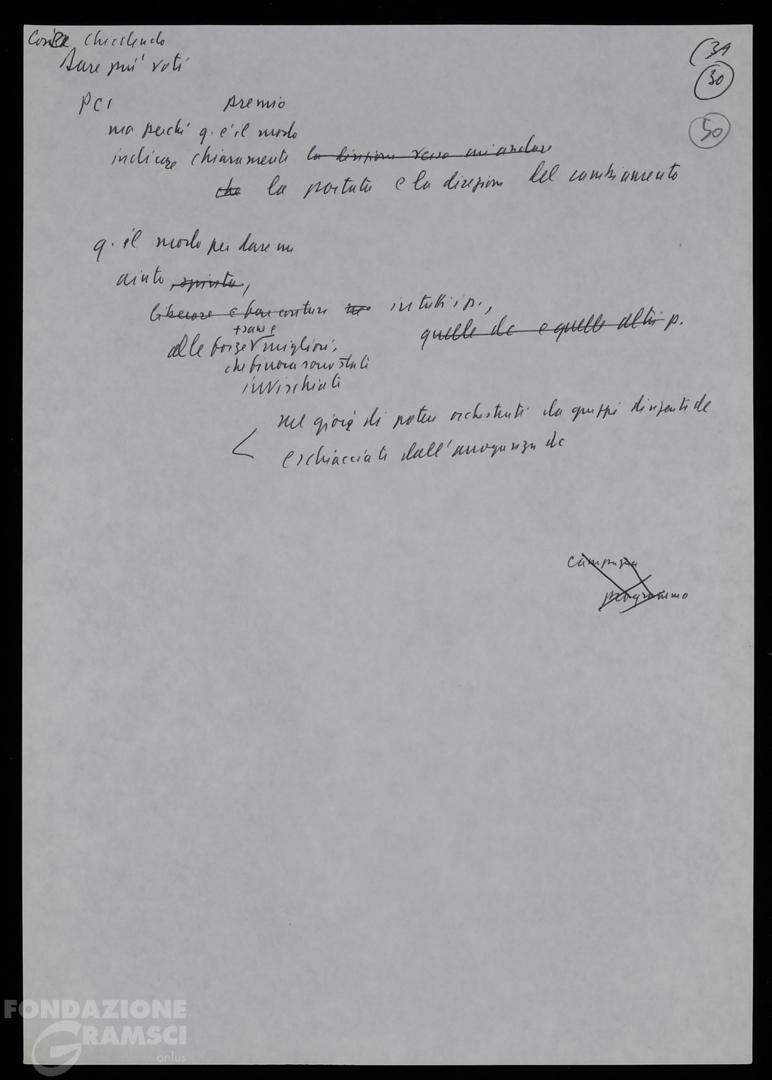 chiedendo
Dare più voti
(39
30
50
PCI premio
ma perché q. è il modo
indicare chiaramente la direzione verso cui andare
che la portata e la direzione del cambiamento
q. il modo per dare un
aiuto, spinta,
liberare e in tutti i p.,
+ sane e
quelle dc e quelle altri p.
alle forze migliori,
che finora sono stati
invischiati
nel gioco di potere orchestrati da gruppi dirigenti dc
e schiacciati dall'arroganza dc
campagna
programma
FONDAZIONE
GRAMSCI
onlus